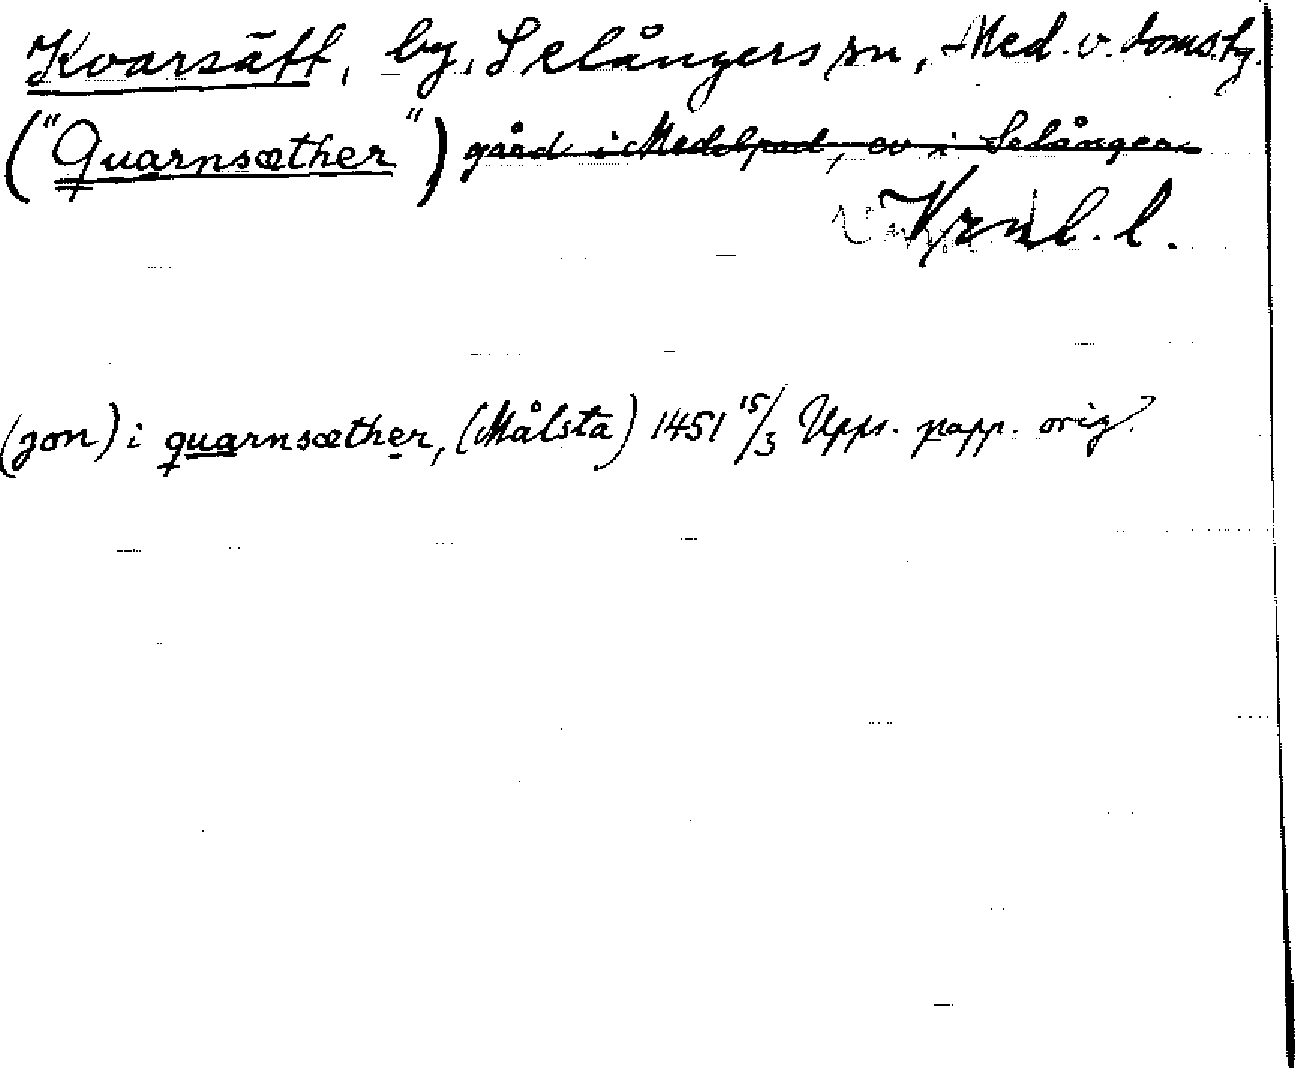 Kvarsätt, by, Selångers sn, Med. v. doms.hg.
("Quarnsæther") gård i Medelpad, ev i Selånger
l. l.
(jon) i quarnsæther, (Målsta) 1451 15/3 Upps. papp. orig.